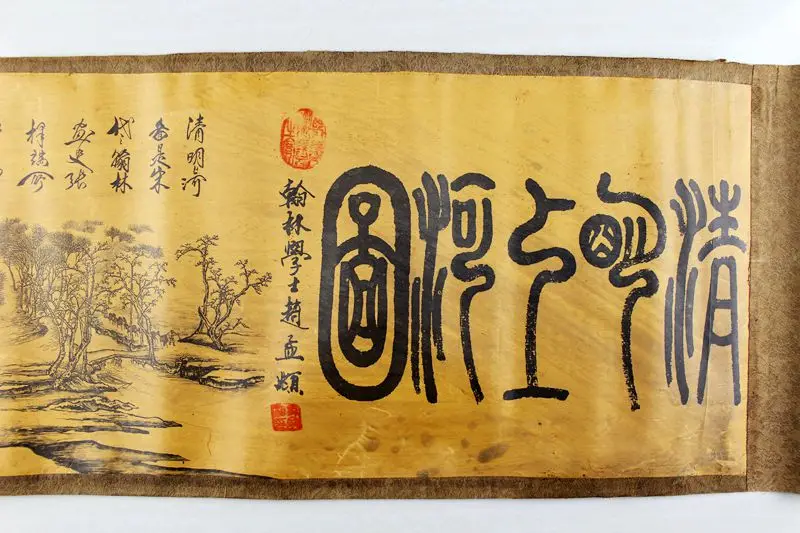 清明上河圖
翰林學士趙孟頫
清明上河
是宋
代翰林
畫史張
擇端